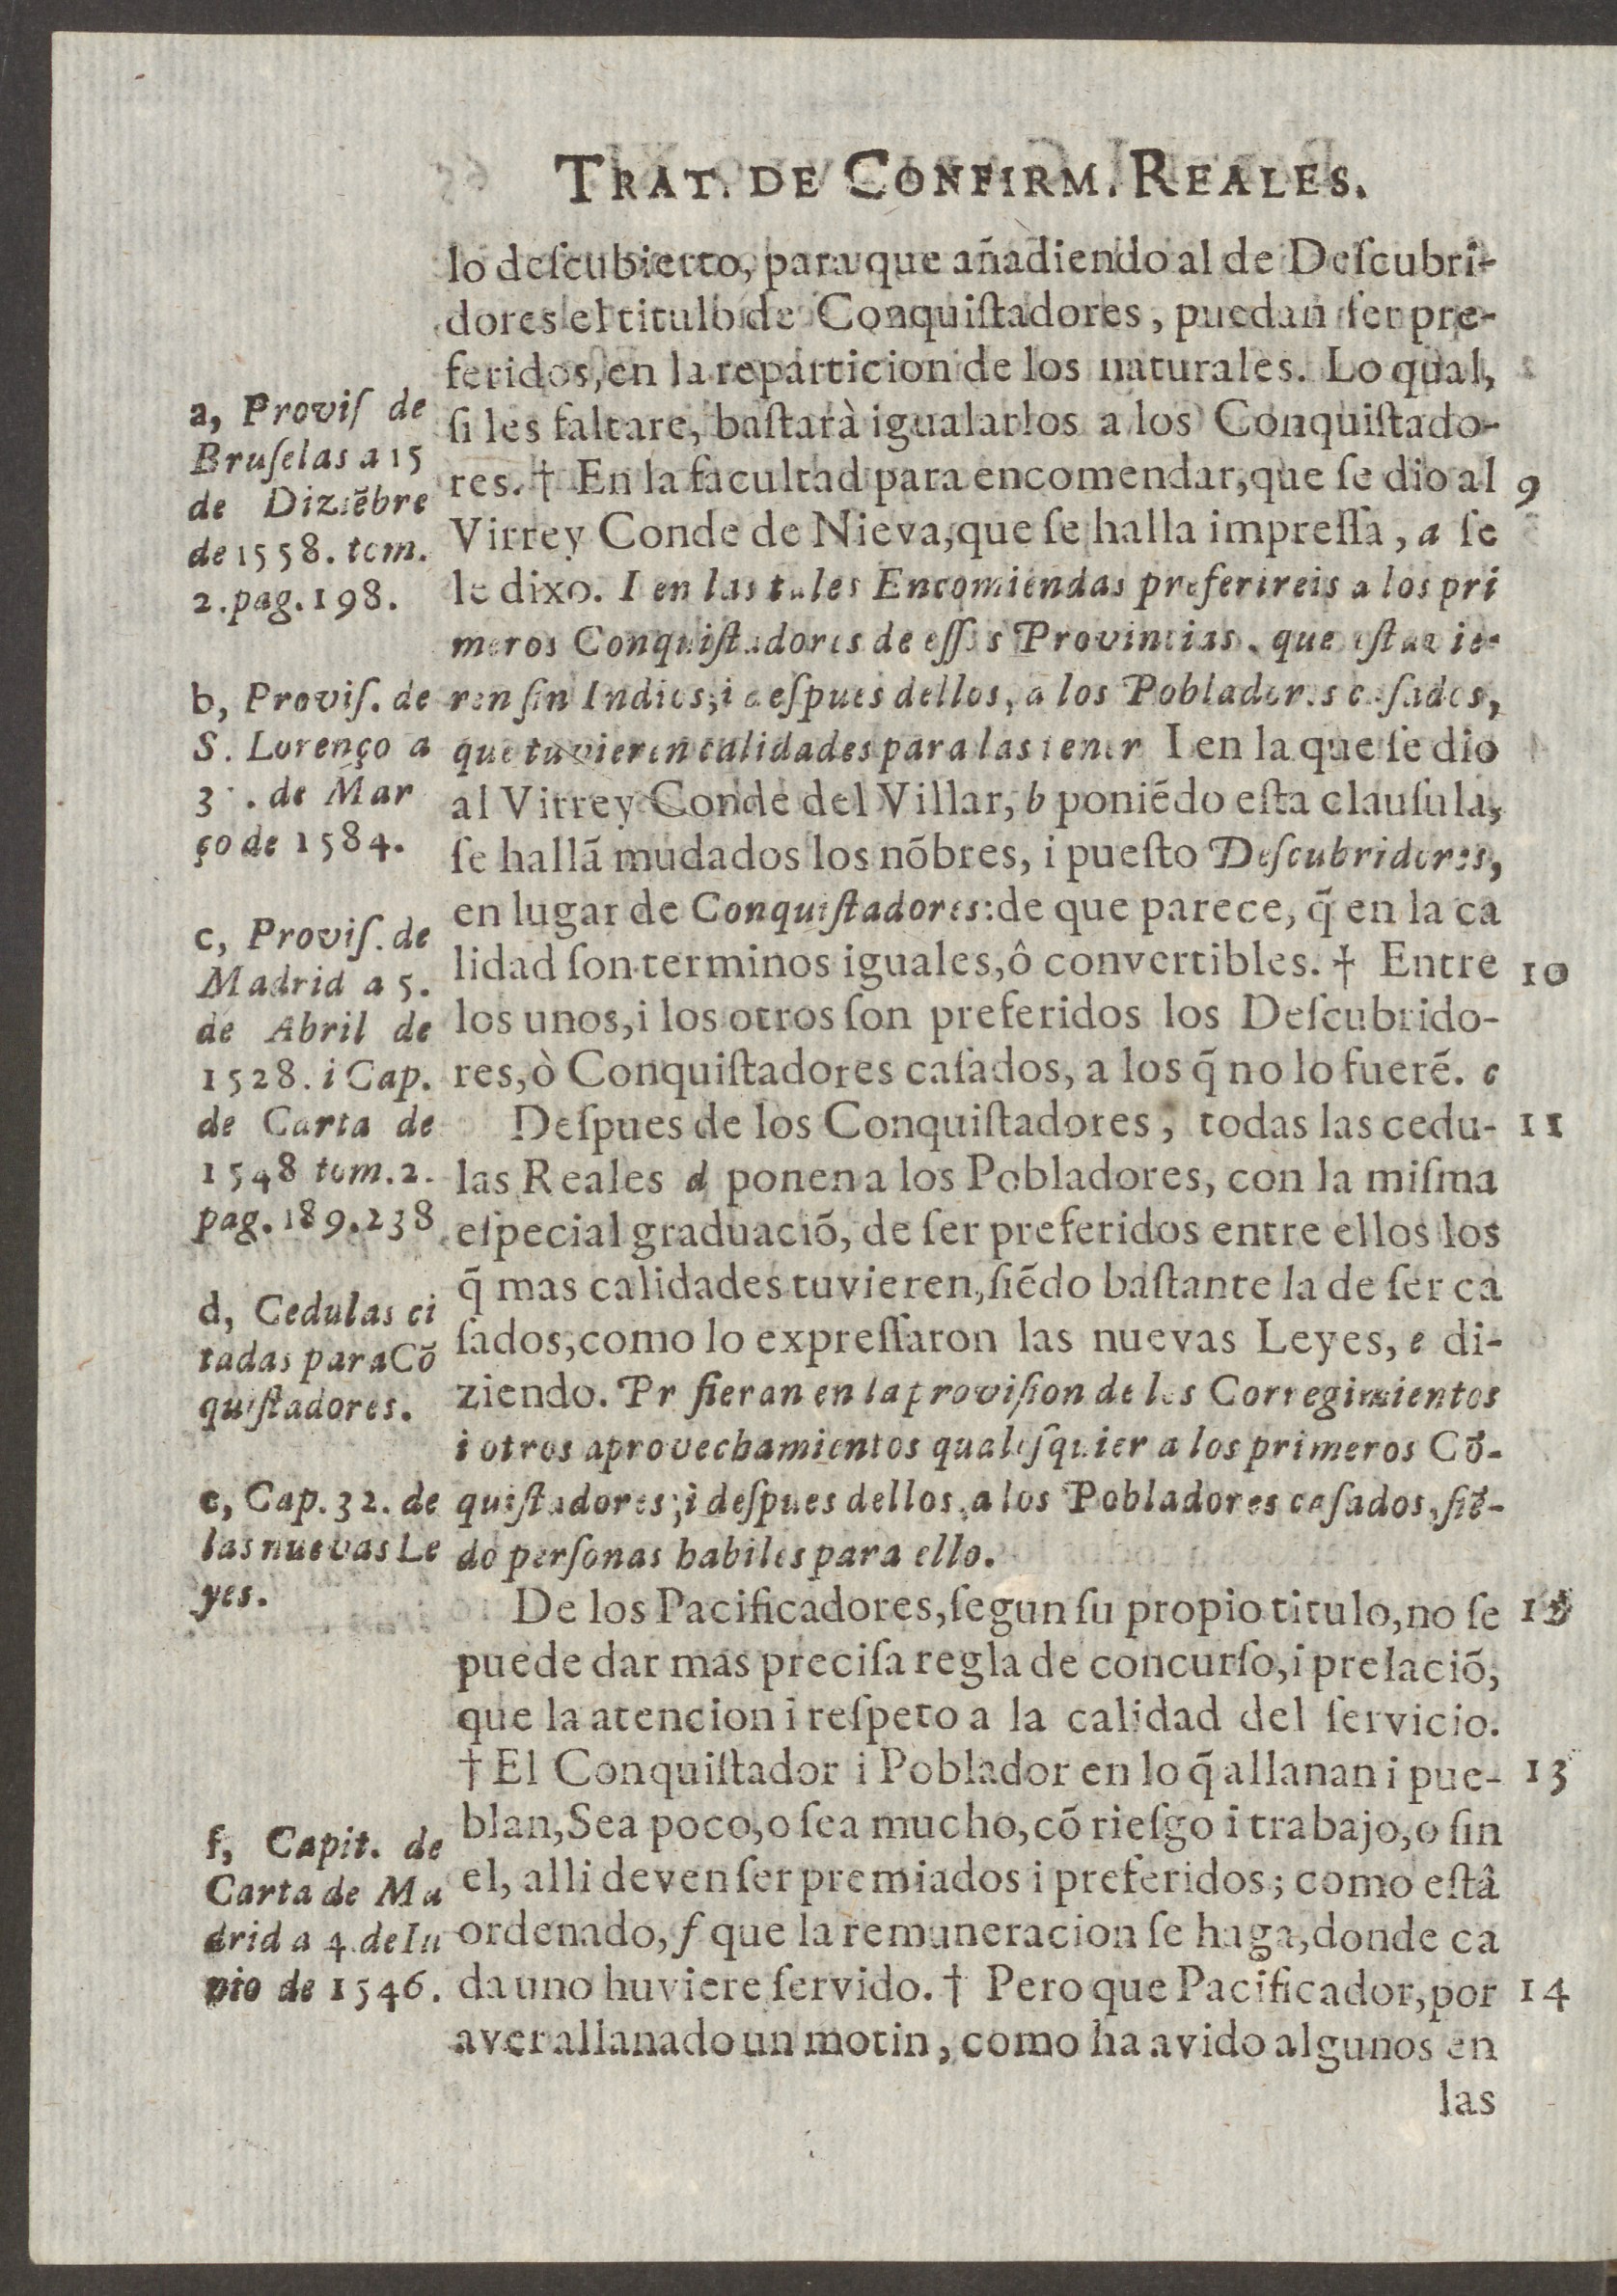 TRAT. DE CONFIRM. REALES.
lo deſcubierto, para que añadiendo al de Deſcubri-
dores el titulo de Conquiſtadores, puedan ſer pre-
feridos, en la reparticion de los naturales. Lo qual,
ſi les faltare, baſtarà igualarlos a los Conquiſtado-
res. † En la facultad para encomendar, que ſe dio al 9
Virrey Conde de Nieva, que ſe halla impreſſa, a ſe
le dixo. I en las tales Encomiendas preferireis a los pri
meros Conquiſtadores de eſſas Provincias, que eſtuvie-
ren ſin Indios; i deſpues dellos, a los Pobladores caſados,
que tuvieren calidades para las tener I en la que ſe dio
al Virrey Conde del Villar, b poniẽdo eſta clauſula,
ſe hallã mudados los nõbres, i pueſto Deſcubridores,
en lugar de Conquiſtadores: de que parece, q̃ en la ca
lidad ſon terminos iguales, ô convertibles. † Entre 10
los unos, i los otros ſon preferidos los Deſcubrido-
res, ò Conquiſtadores caſados, a los q̃ no lo fuerẽ. c
Deſpues de los Conquiſtadores, todas las cedu- 11
las Reales d ponen a los Pobladores, con la miſma
eſpecial graduaciõ, de ſer preferidos entre ellos los
q̃ mas calidades tuvieren, ſiẽdo baſtante la de ſer ca
ſados, como lo expreſſaron las nuevas Leyes, e di-
ziendo. Pr fieran en la proviſion de los Corregimientos
i otros aprovechamientos qualeſquier a los primeros Cõ-
quiſtadores; i deſpues dellos, a los Pobladores caſados, ſiẽ-
do perſonas habiles para ello.
De los Pacificadores, ſegun ſu propio titulo, no ſe 12
puede dar mas preciſa regla de concurſo, i prelaciõ,
que la atencion i reſpeto a la calidad del ſervicio.
† El Conquiſtador i Poblador en lo q̃ allanan i pue- 13
blan, Sea poco, o ſea mucho, cõ rieſgo i trabajo, o ſin
el, alli deven ſer premiados i preferidos; como eſtâ
ordenado, f que la remuneracion ſe haga, donde ca
da uno huviere ſervido. † Pero que Pacificador, por 14
aver allanado un motin, como ha avido algunos en
las
a, Proviſ de
Bruſelas a 15
de Diziẽbre
de 1558. tom.
2. pag. 198.
b, Proviſ. de
S. Lorenço a
3 . de Mar
ço de 1584.
c, Proviſ. de
Madrid a 5.
de Abril de
1528. i Cap.
de Carta de
1548 tom. 2.
pag. 189. 238
d, Cedulas ci
tadas para Cõ
quiſtadores.
e, Cap. 32. de
las nuevas Le
yes.
f, Capit. de
Carta de Ma
drid a 4. de Iu
nio de 1546.